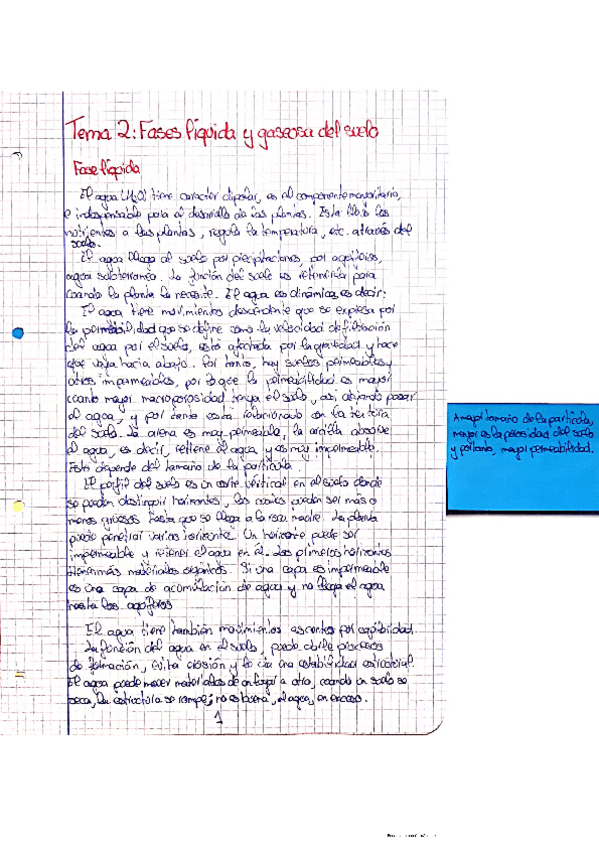 Tema 2: Fases líquida y gaseosa del suelo
Fase líquida
El agua (H₂O) tiene carácter dipolar, es el componente mayoritario,
e indispensable para el desarrollo de las plantas. Esta lleva los
nutrientes a las plantas, regula la temperatura, etc. através del
suelo.
El agua llega al suelo por precipitaciones, por acuíferos,
agua subterránea. La función del suelo es retenerla para
cuando la planta la necesite. El agua es dinámica, es decir:
El agua tiene movimientos descendente que se expresa por
la permeabilidad que se define como la velocidad de filtración
del agua por el suelo, está afectada por la gravedad y hace
que vaya hacia abajo. Por tanto, hay suelos permeables y
otros impermeables, por lo que la permeabilidad es mayor
cuanto mayor macroporosidad tenga el suelo, así, dejando pasar
el agua, y por tanto está relacionado con la textura
del suelo. La arena es muy permeable, la arcilla absorbe
el agua, es decir, retiene el agua y es muy impermeable.
Esto depende del tamaño de la partícula.
El perfil del suelo es un corte vertical en el suelo donde
se pueden distinguir horizontes, los cuales pueden ser más o
menos gruesos hasta que se llega a la roca madre. La planta
puede penetrar varios horizonte. Un horizonte puede ser
impermeable y retener el agua en él. Los primeros horizontes
tienen más materiales orgánicos. Si una capa es impermeable
es una capa de acumulación de agua y no llega el agua
hasta los acuíferos
El agua tiene también movimientos ascentes por capilaridad.
La función del agua en el suelo, puede abrile procesos
de formación, evita erosión y le da una estabilidad estructural.
El agua puede mover materiales de un lugar a otro, cuando un suelo se
seca, la estructura se rompe; no es buena, el agua, en exceso.
1
A mayor tamaño de la partícula,
mayor es la porosidad del suelo
y por tanto, mayor permeabilidad.